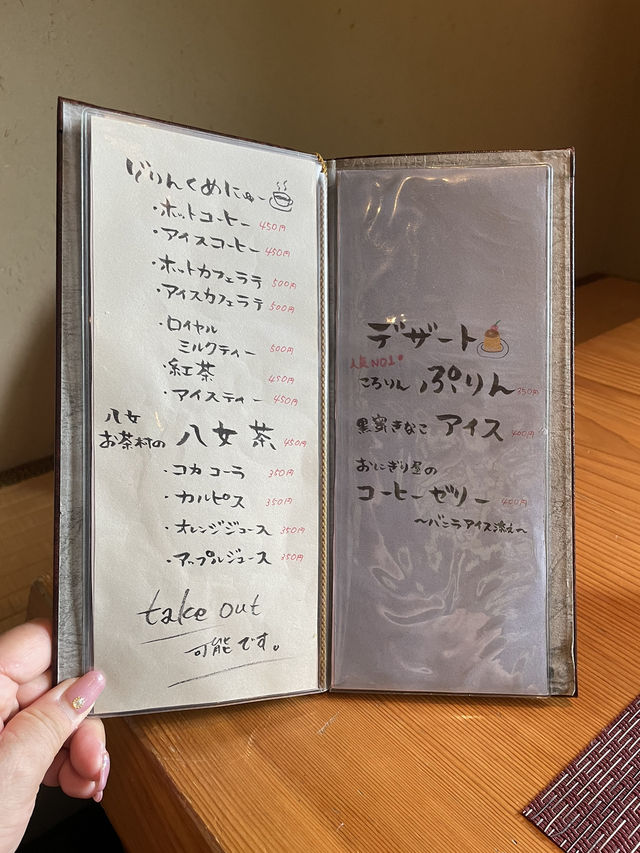 どりんくめにゅー
・ホットコーヒー 450円
・アイスコーヒー 450円
・ホットカフェラテ 500円
・アイスカフェラテ 500円
・ロイヤル
ミルクティー 500円
・紅茶 450円
・アイスティー 450円
八女
お茶村の 八女茶 450円
・コカコーラ 350円
・カルピス 350円
・オレンジジュース 350円
・アップルジュース 350円
take out
可能です。
デザート
人気NO1!
ころりん ぷりん 350円
黒蜜きなこ アイス 400円
おにぎり屋の
コーヒーゼリー 400円
〜バニラアイス添え〜